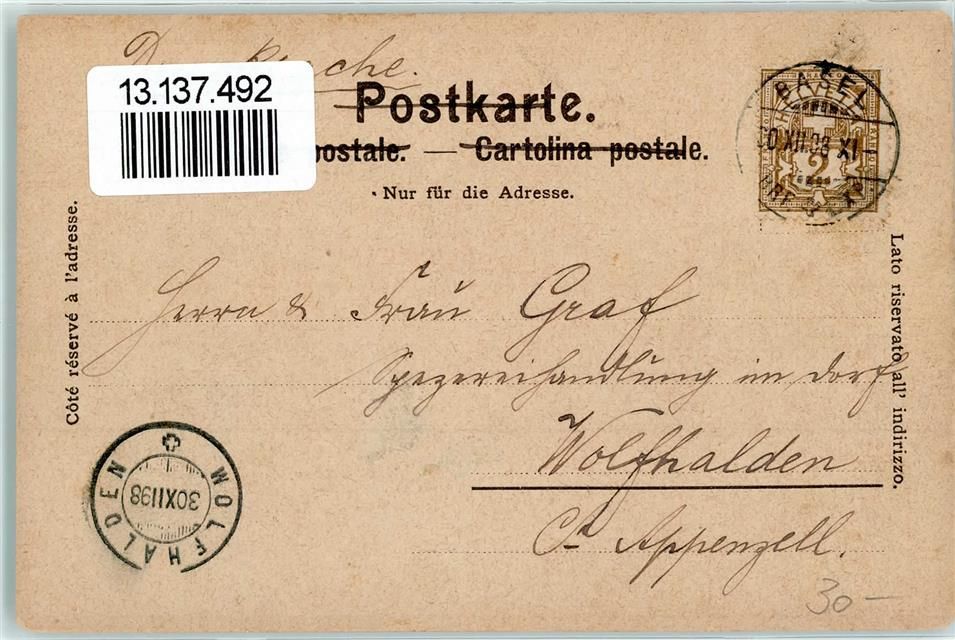 13.137.492
Postkarte.
postale. — Cartolina postale.
Nur für die Adresse.
Côté réservé à l'adresse.
Lato riservato all' indirizzo.
BASEL
XII.98 XI
2
Herrn & Frau Graf
Spezereihandlung im Dorf
Wolfhalden
Ct. Appenzell.
WOLFHALDEN
30XII98
30 —